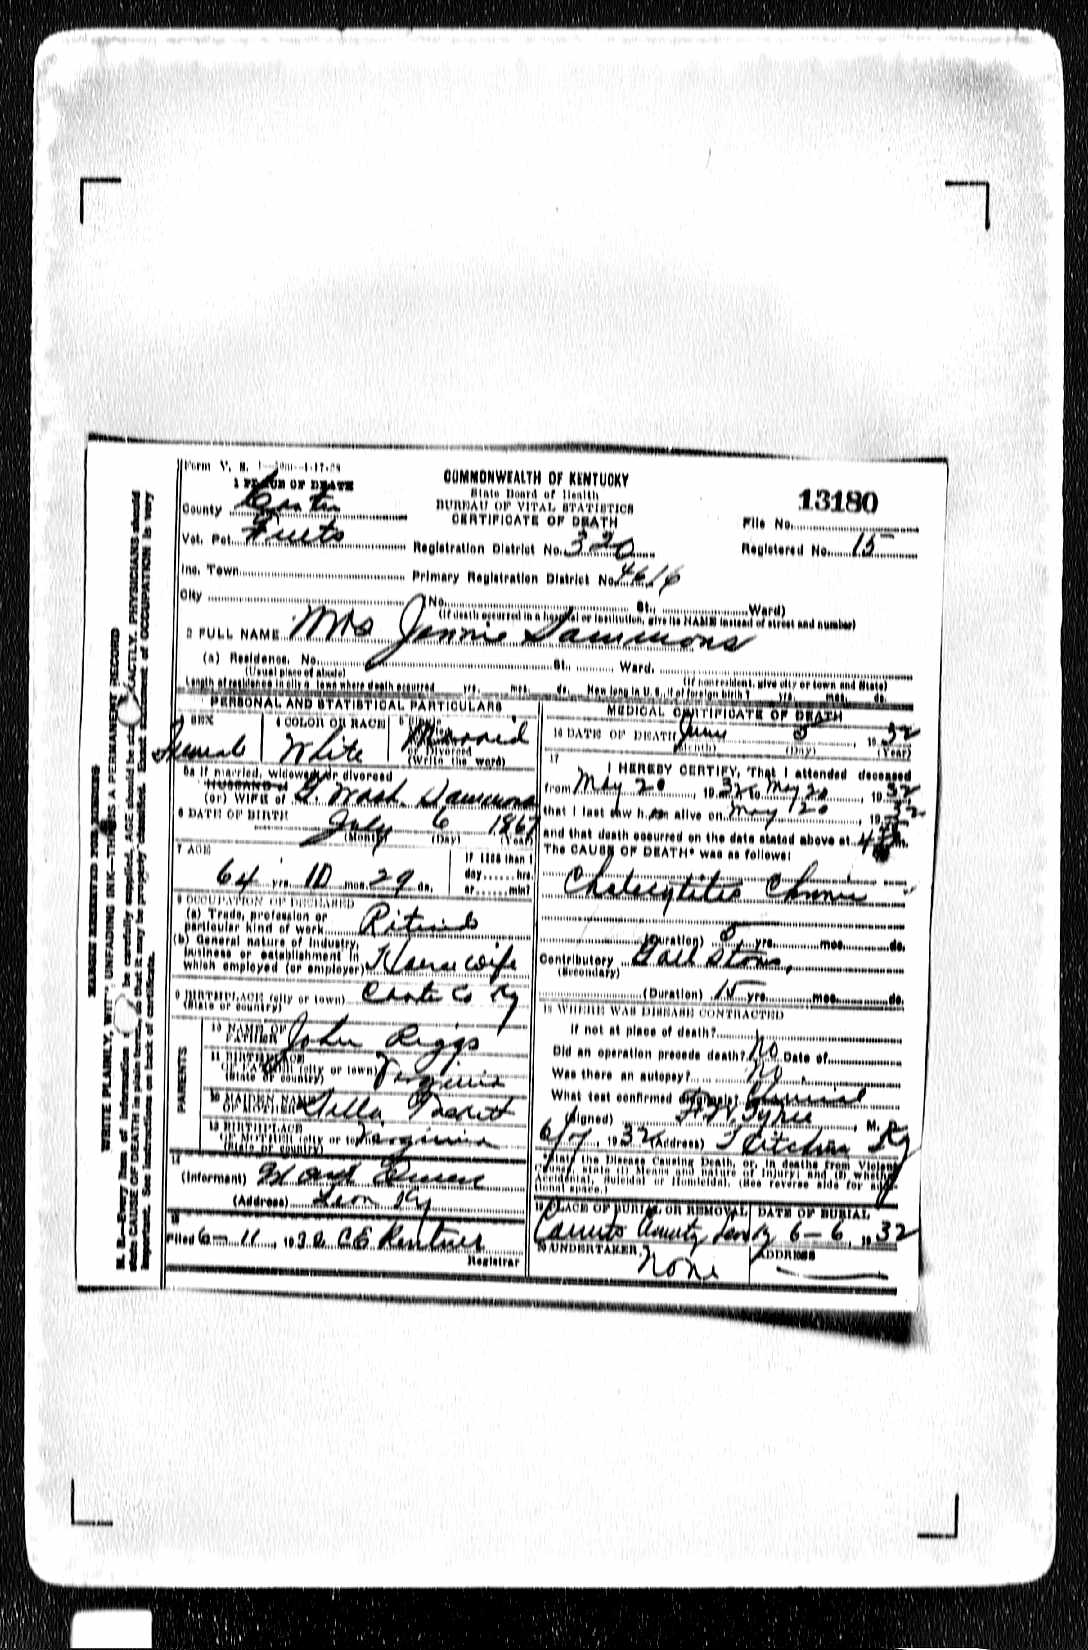 Form V. S. 1
1 PLACE OF DEATH
COMMONWEALTH OF KENTUCKY
State Board of Health
BUREAU OF VITAL STATISTICS
CERTIFICATE OF DEATH
13180
File No.
County Carter
Vot. Pct. Fults
Registration District No. 320
Registered No. 15
Inc. Town
Primary Registration District No. 4616
City
(No. St., Ward)
(If death occurred in a hospital or institution, give its NAME instead of street and number)
2 FULL NAME Mrs Jennie Sammons
(a) Residence. No. St., Ward.
(Usual place of abode)
(If nonresident, give city or town and State)
Length of residence in city or town where death occurred yrs. mos. ds. How long in U. S., if of foreign birth? yrs. mos. ds.
PERSONAL AND STATISTICAL PARTICULARS
SEX
Female
4 COLOR OR RACE
White
Married
(Write the word)
5a If married, widowed or divorced
HUSBAND of
(or) WIFE of G. Wash. Sammons
6 DATE OF BIRTH July 6 1867
(Month) (Day) (Year)
7 AGE
64 yrs. 10 mos. 29 ds.
If LESS than 1
day hrs.
or min?
8 OCCUPATION OF DECEASED
(a) Trade, profession or
particular kind of work Ritired
(b) General nature of industry,
business or establishment in
which employed (or employer) House wife
9 BIRTHPLACE (city or town)
(State or country) Carter Co Ky
PARENTS
10 NAME OF
FATHER John Riggs
11 BIRTHPLACE
OF FATHER (city or town)
(State or country) Virginia
12 MAIDEN NAME
OF MOTHER Della
13 BIRTHPLACE
OF MOTHER (city or town) Virginia
(State or country)
14
(Informant)
(Address) Leon Ky
15
Filed 6-11, 1932 CE
Registrar
MEDICAL CERTIFICATE OF DEATH
16 DATE OF DEATH June 5, 1932
(Month) (Day) (Year)
17
I HEREBY CERTIFY, That I attended deceased
from May 20, 1932 to May 20, 1932
that I last saw h er alive on May 20, 1932
and that death occurred on the date stated above at 4 m.
The CAUSE OF DEATH* was as follows:
Cholecystitis Chronic
(Duration) 5 yrs. mos. ds.
Contributory Gall Stones,
(Secondary)
(Duration) 15 yrs. mos. ds.
18 WHERE WAS DISEASE CONTRACTED
If not at place of death?
Did an operation precede death? No Date of
Was there an autopsy? No.
What test confirmed diagnosis? Clinical
(Signed) Tyree M.
6/7, 1932 (Address) Ky
*State the Disease Causing Death, or, in deaths from Violent
Causes, state (1) Means and nature of Injury; and (2) whether
Accidental, Suicidal or Homicidal. (See reverse side for additional space.)
19 PLACE OF BURIAL OR REMOVAL
DATE OF BURIAL
6-6, 1932
20 UNDERTAKER, None
ADDRESS
MARGIN RESERVED FOR BINDING
WRITE PLAINLY, WITH UNFADING INK—THIS IS A PERMANENT RECORD
N. B.—Every item of information be carefully supplied. AGE should be stated EXACTLY. PHYSICIANS should
state CAUSE OF DEATH in plain terms, so that it may be properly classified. Exact statement of OCCUPATION is very
important. See instructions on back of certificate.